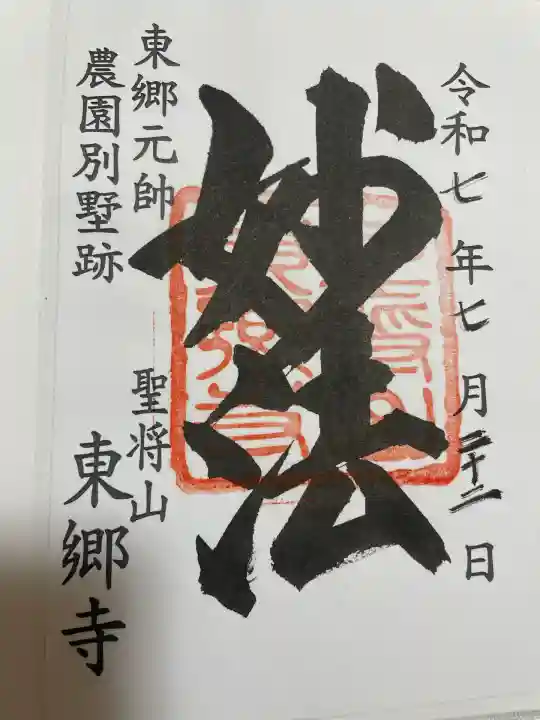 令和七年七月二十二日
妙法
東郷元帥
農園別墅跡
聖将山
東郷寺